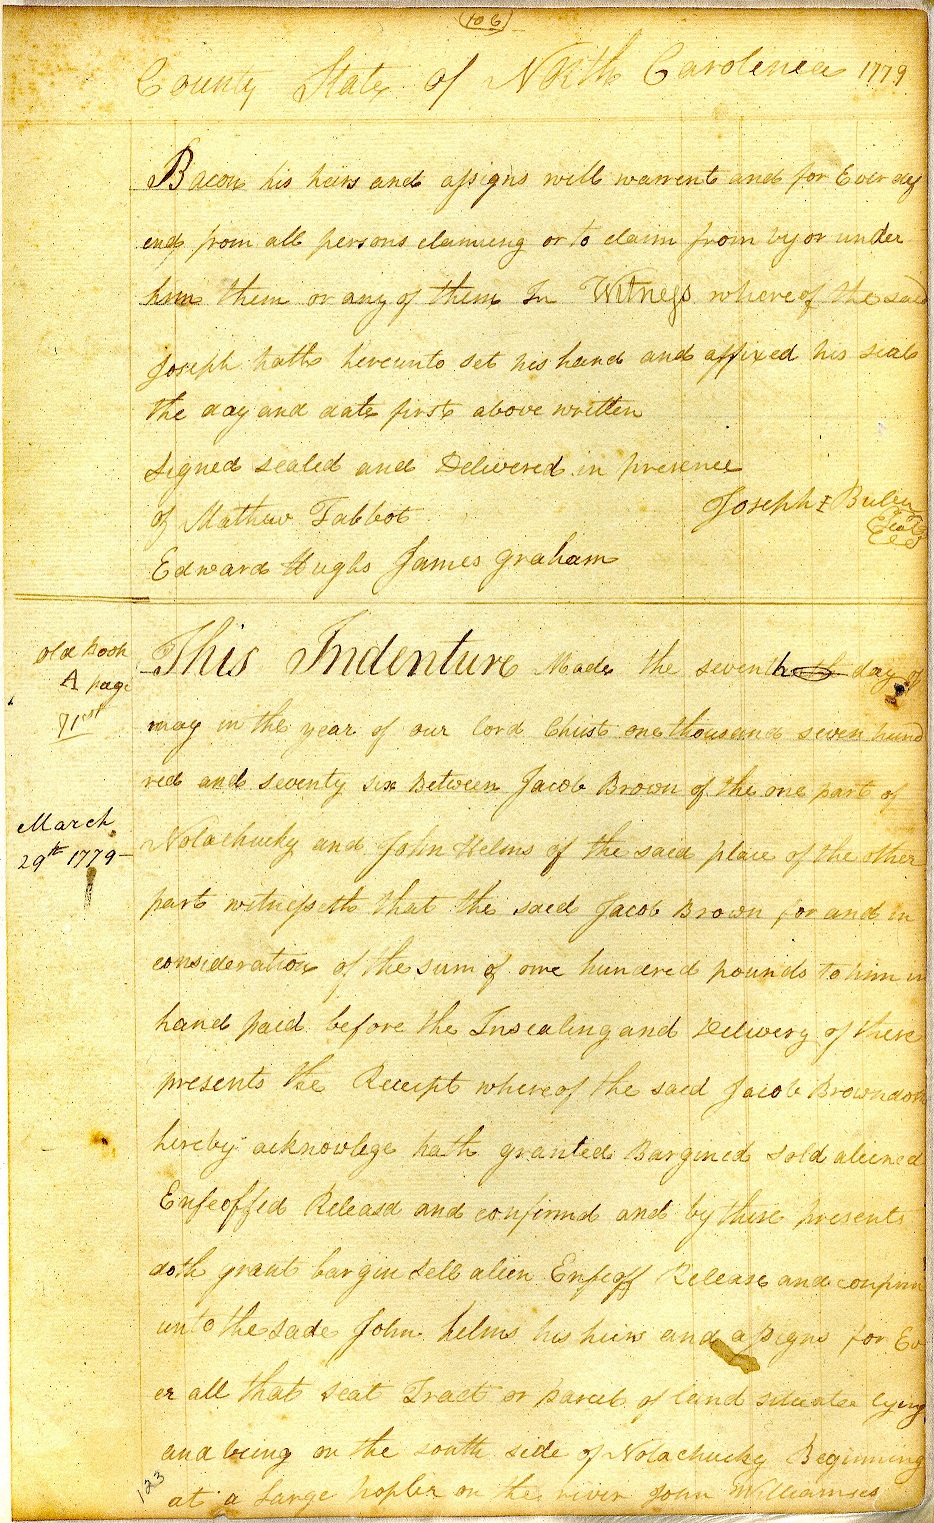 106
County State of North Carolenea 1779
Bacon his heirs and assigns will warrent and for Ever def
end from all persons claming or to claim from by or under
him them or any of them In Witness where of the said
Joseph hath hereunto set his hand and affixed his seal
the day and date first above written
Signed sealed and Delivered in presence
of Mathew Talbot
Joseph Buler
Seal
Edward Hughs James Graham
Old Book
A page
71st
This Indenture Made the seventh day of
may in the year of our lord Christ one thousand seven hund
red and seventy six Between Jacob Brown of the one part of
March
29th 1779
Nolachucky and John Helms of the said place of the other
part witnesseth that the said Jacob Brown for and in
consideration of the sum of one hundred pounds to him in
hand paid before the Insealing and Delivery of these
presents the Receipt where of the said Jacob Brown doth
hereby acknowlege hath granted Bargined sold aliened
Enfeoffed Releasd and confirmd and by these presents
doth grant bargin sell alien Enfeoff Release and confirm
unto the sade John helms his heirs and assigns for Ev
er all that seat Tract or parcel of land situate lying
and being on the south side of Nolachucky Beginning
123
at a large popler on the river John Williamses